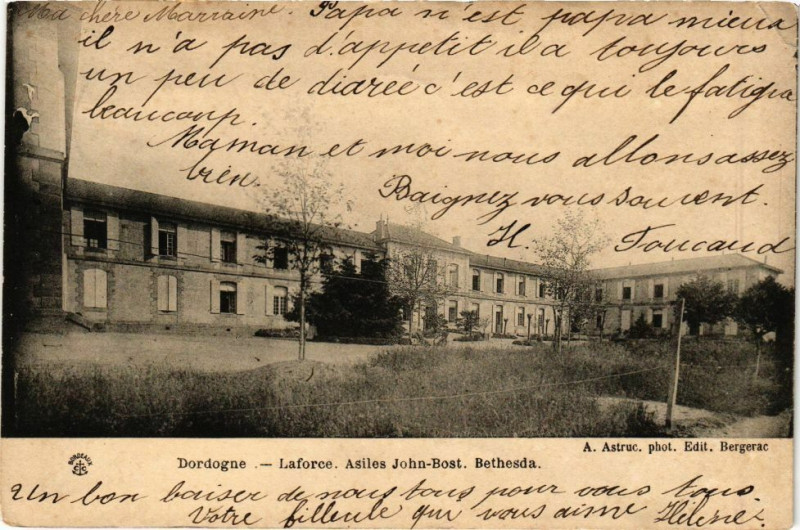 Ma chère Marraine. Papa n'est papa mieux
il n'a pas d'appetit il a toujours
un peu de diarée c'est ce qui le fatigue
beaucoup.
Maman et moi nous allons assez
bien.
Baignez vous souvent.
H. Foucaud
A. Astruc. phot. Edit. Bergerac
BORDEAUX
Dordogne. — Laforce. Asiles John-Bost. Bethesda.
Un bon baiser de nous tous pour vous tous.
Votre filleule qui vous aime